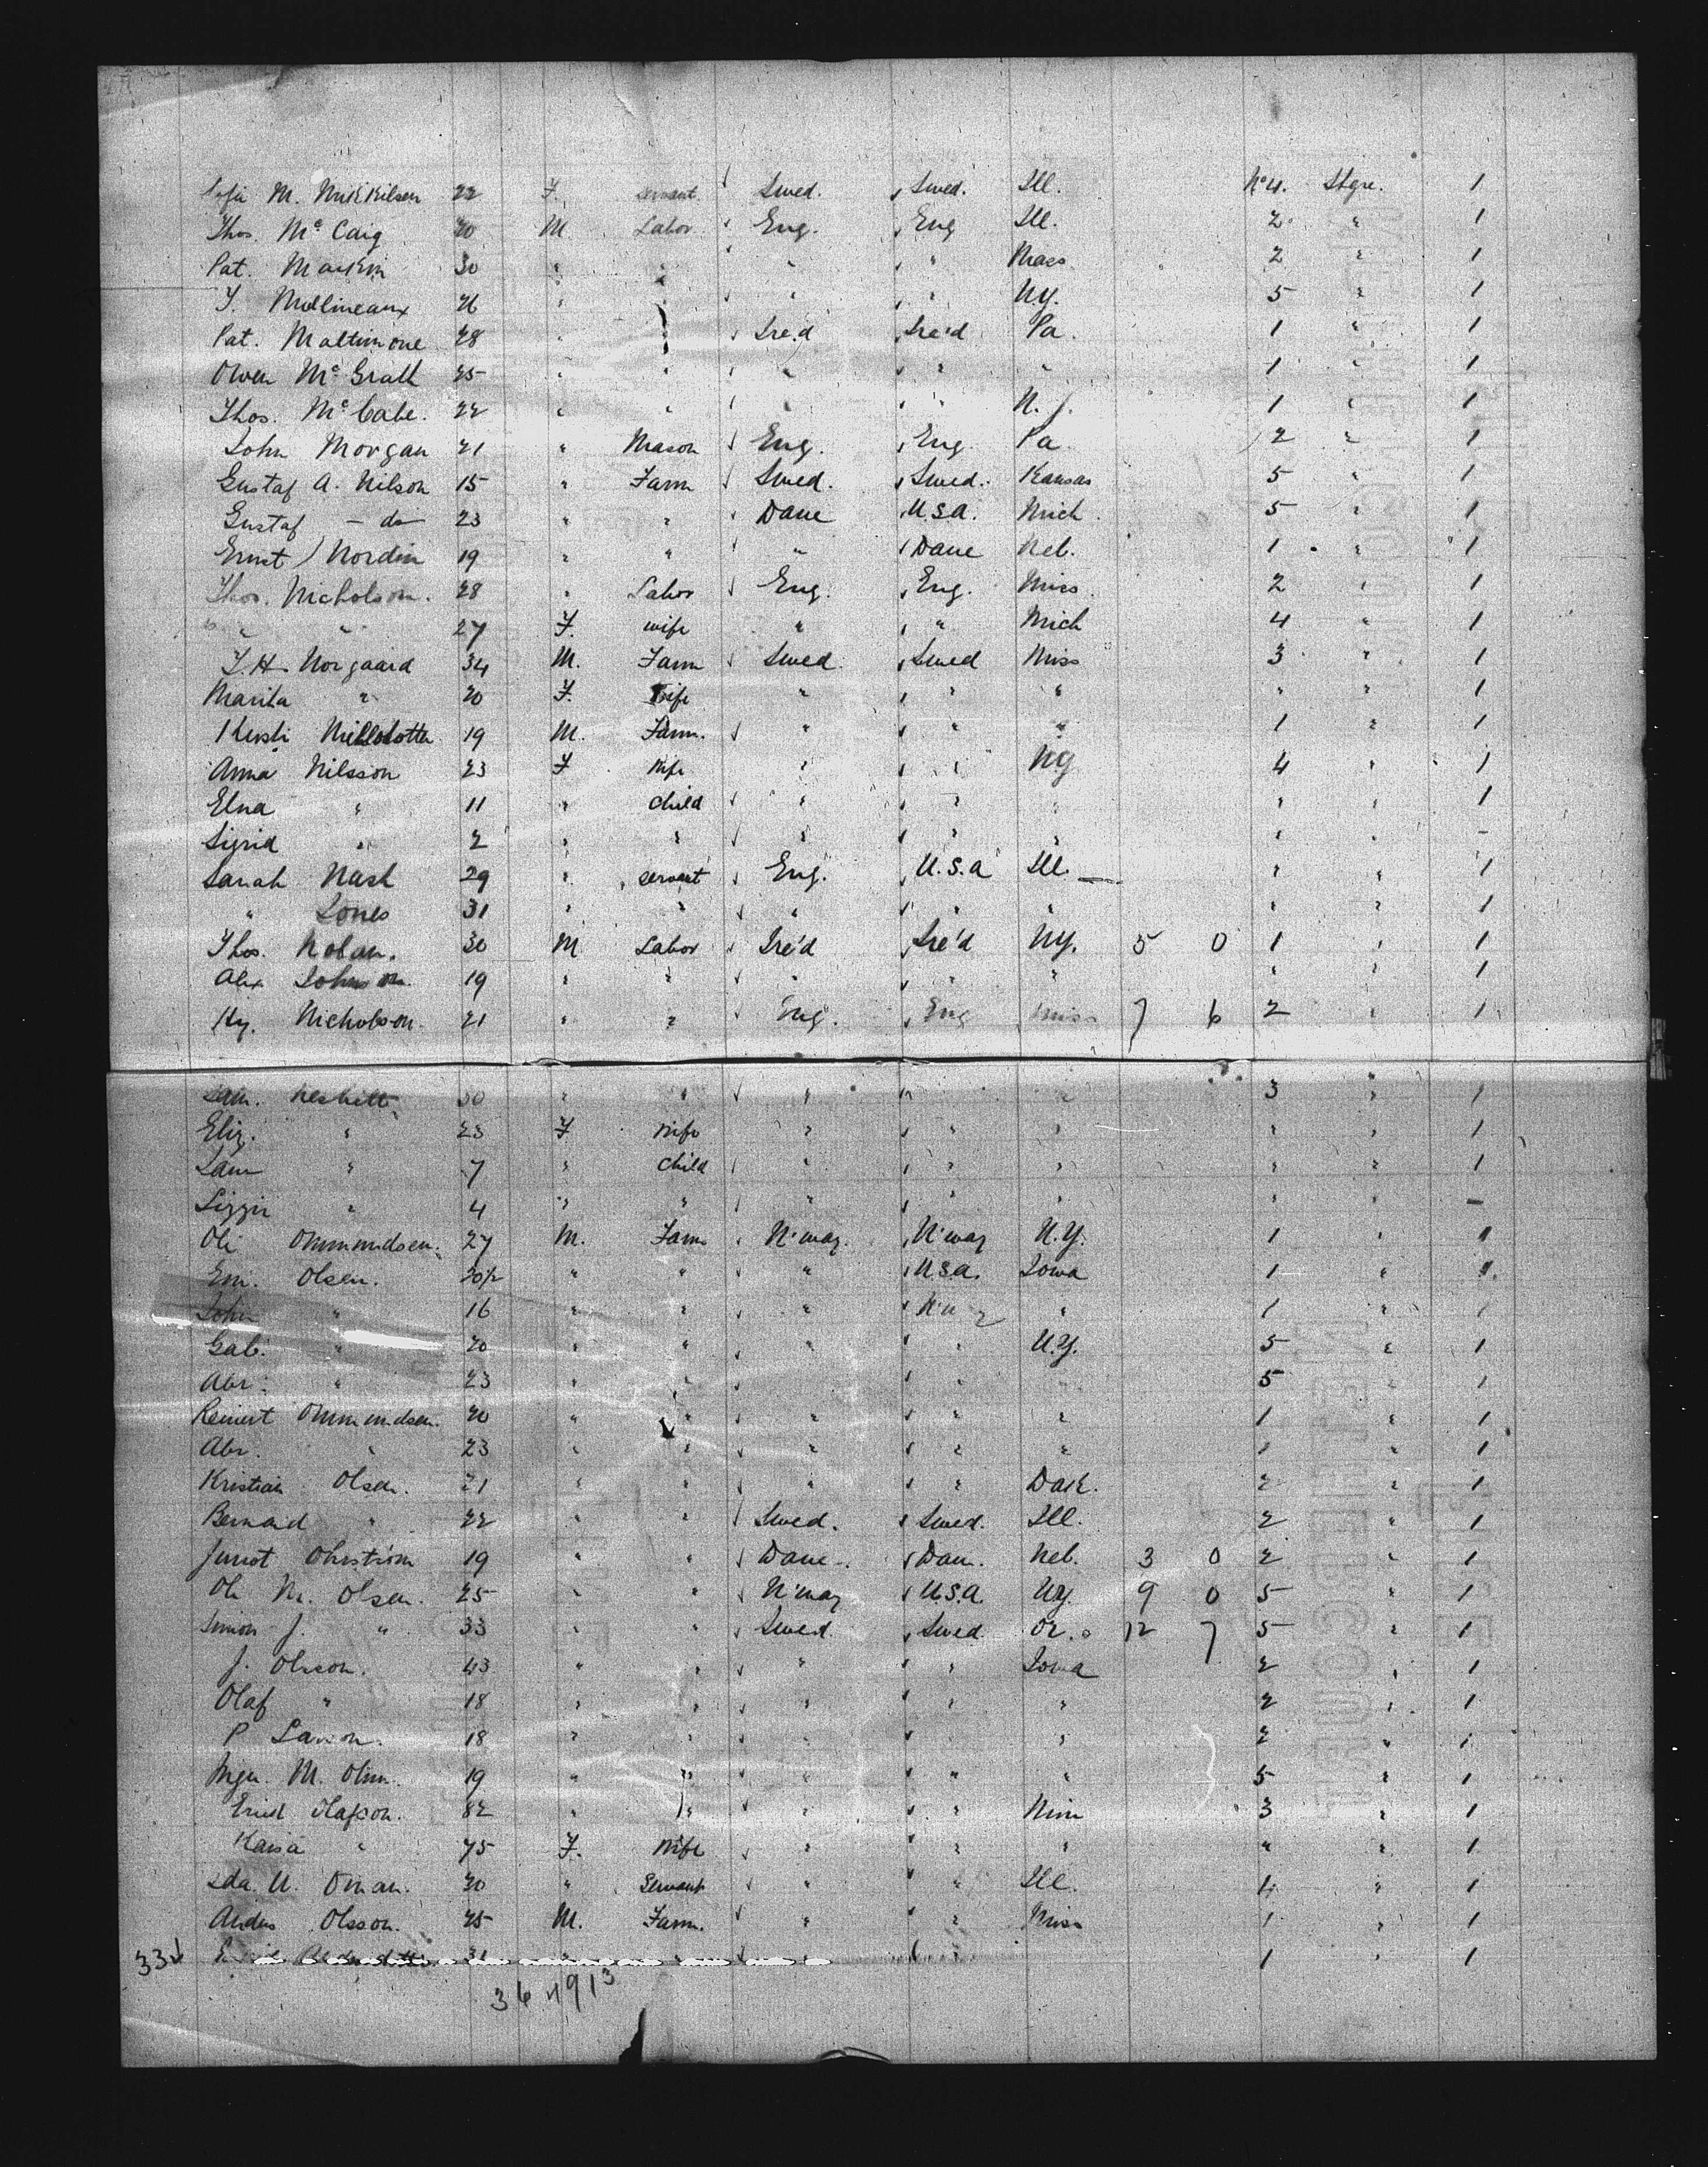 M. Mikkilsen 22 F. servant Swed. Swed. Ill. No 4. Stge. 1
Thos. Mc Caig 20 M Labor Eng. Eng Ill. 2 " 1
Pat. 30 " " " " Mass 2 " 1
T. Mullineaux 26 " " " N.Y. 5 " 1
Pat. Maltimore 28 " Ire'd Ire'd Pa. 1 " 1
Owen Mc Grath 25 " " " " " 1 " 1
Thos. Mc Cabe. 22 " " " " N.J. 1 " 1
John Morgan 21 " Mason Eng. Eng. Pa. 2 " 1
Gustaf A. Nilson 15 " Farm Swed. Swed. Kansas 5 " 1
Gustaf - do - 23 " " Dane U.S.A. Mich. 5 " 1
Ernst Nordin 19 " " " Dane Neb. 1 " 1
Thos. Nicholson. 28 " Labor Eng. Eng. Miss. 2 " 1
" " 27 F. wife " " Mich 4 " 1
T. H. Norgaard 34 M. Farm Swed. Swed Miss 3 " 1
Marita " 20 F. Wife " " " " " 1
19 M. Farm. " " " 1 " 1
Anna Nilsson 23 F Wife " " NY 4 " 1
Elna " 11 " child " " " " " 1
Sigrid " 2 " " " " " " " -
Sarah Nash 29 " servant Eng. U.S.A Ill. " " 1
" Jones 31 " " " " " " " 1
Thos. Nolan. 30 M Labor Ire'd Ire'd NY. 5 0 1 " 1
Alex Johnson. 19 " " " " " " " 1
Hy. Nicholson. 21 " " Eng. Eng Miss 7 6 2 " 1
Sam. Nesbitt 30 " " " " " 3 " 1
Eliz. " 23 F Wife " " " " " 1
Sam " 7 " child " " " " " 1
Lizzie " 4 " " " " " " " -
Ole Ommundsen. 27 M. Farm N'way. N'way N.Y. 1 " 1
Em. Olsen. " " " U.S.A. Iowa 1 " 1
John " 16 " " " " 1 " 1
Gab. " 20 " " " " N.Y. 5 " 1
Abr. " 23 " " " " " 5 " 1
Reinert Ommundsen. 20 " " " " " 1 " 1
Abr. " 23 " " " " " 1 " 1
Kristian Olsen. 21 " " " " Dak. 2 " 1
Bernard " 22 " " Swed. Swed. Ill. 2 " 1
Ohrstrom 19 " " Dane. Dan. Neb. 3 0 2 " 1
Ole M. Olsen. 25 " " N'way U.S.A. NY. 9 0 5 " 1
Simon J. " 33 " " Swed. Swed. Or. 12 7 5 " 1
J. Olsson. 43 " " " " Iowa 2 " 1
Olaf " 18 " " " " " 2 " 1
P Larson. 18 " " " " " 2 " 1
M. 19 " " " " " 5 " 1
Olafson. 82 " " " " 3 " 1
Kaisa " 75 F. Wife " " " " " 1
Ida. U. Oman. 20 " Servant " " Ill. 4 " 1
Anders Olsson. 25 M. Farm. " " Miss 1 " 1
1 " 1
364913